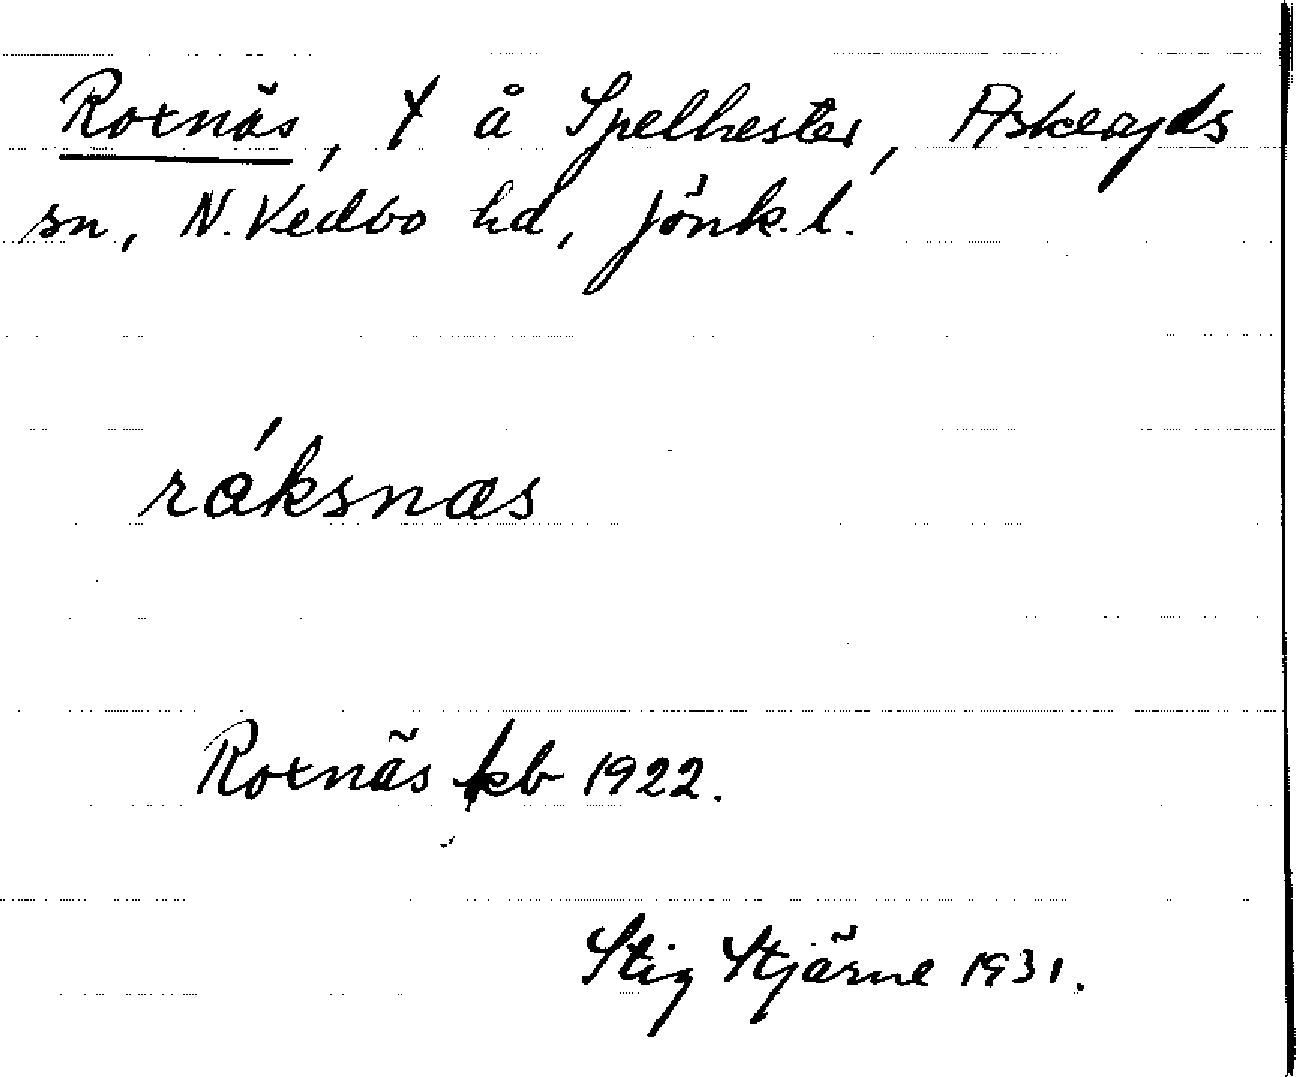 Roxnäs, t å Spelhester, Askeryds
sn, N. Vedbo hd, Jönk. l.
ráksnas
Roxnäs kb 1922.
Stig Stjärne 1931.